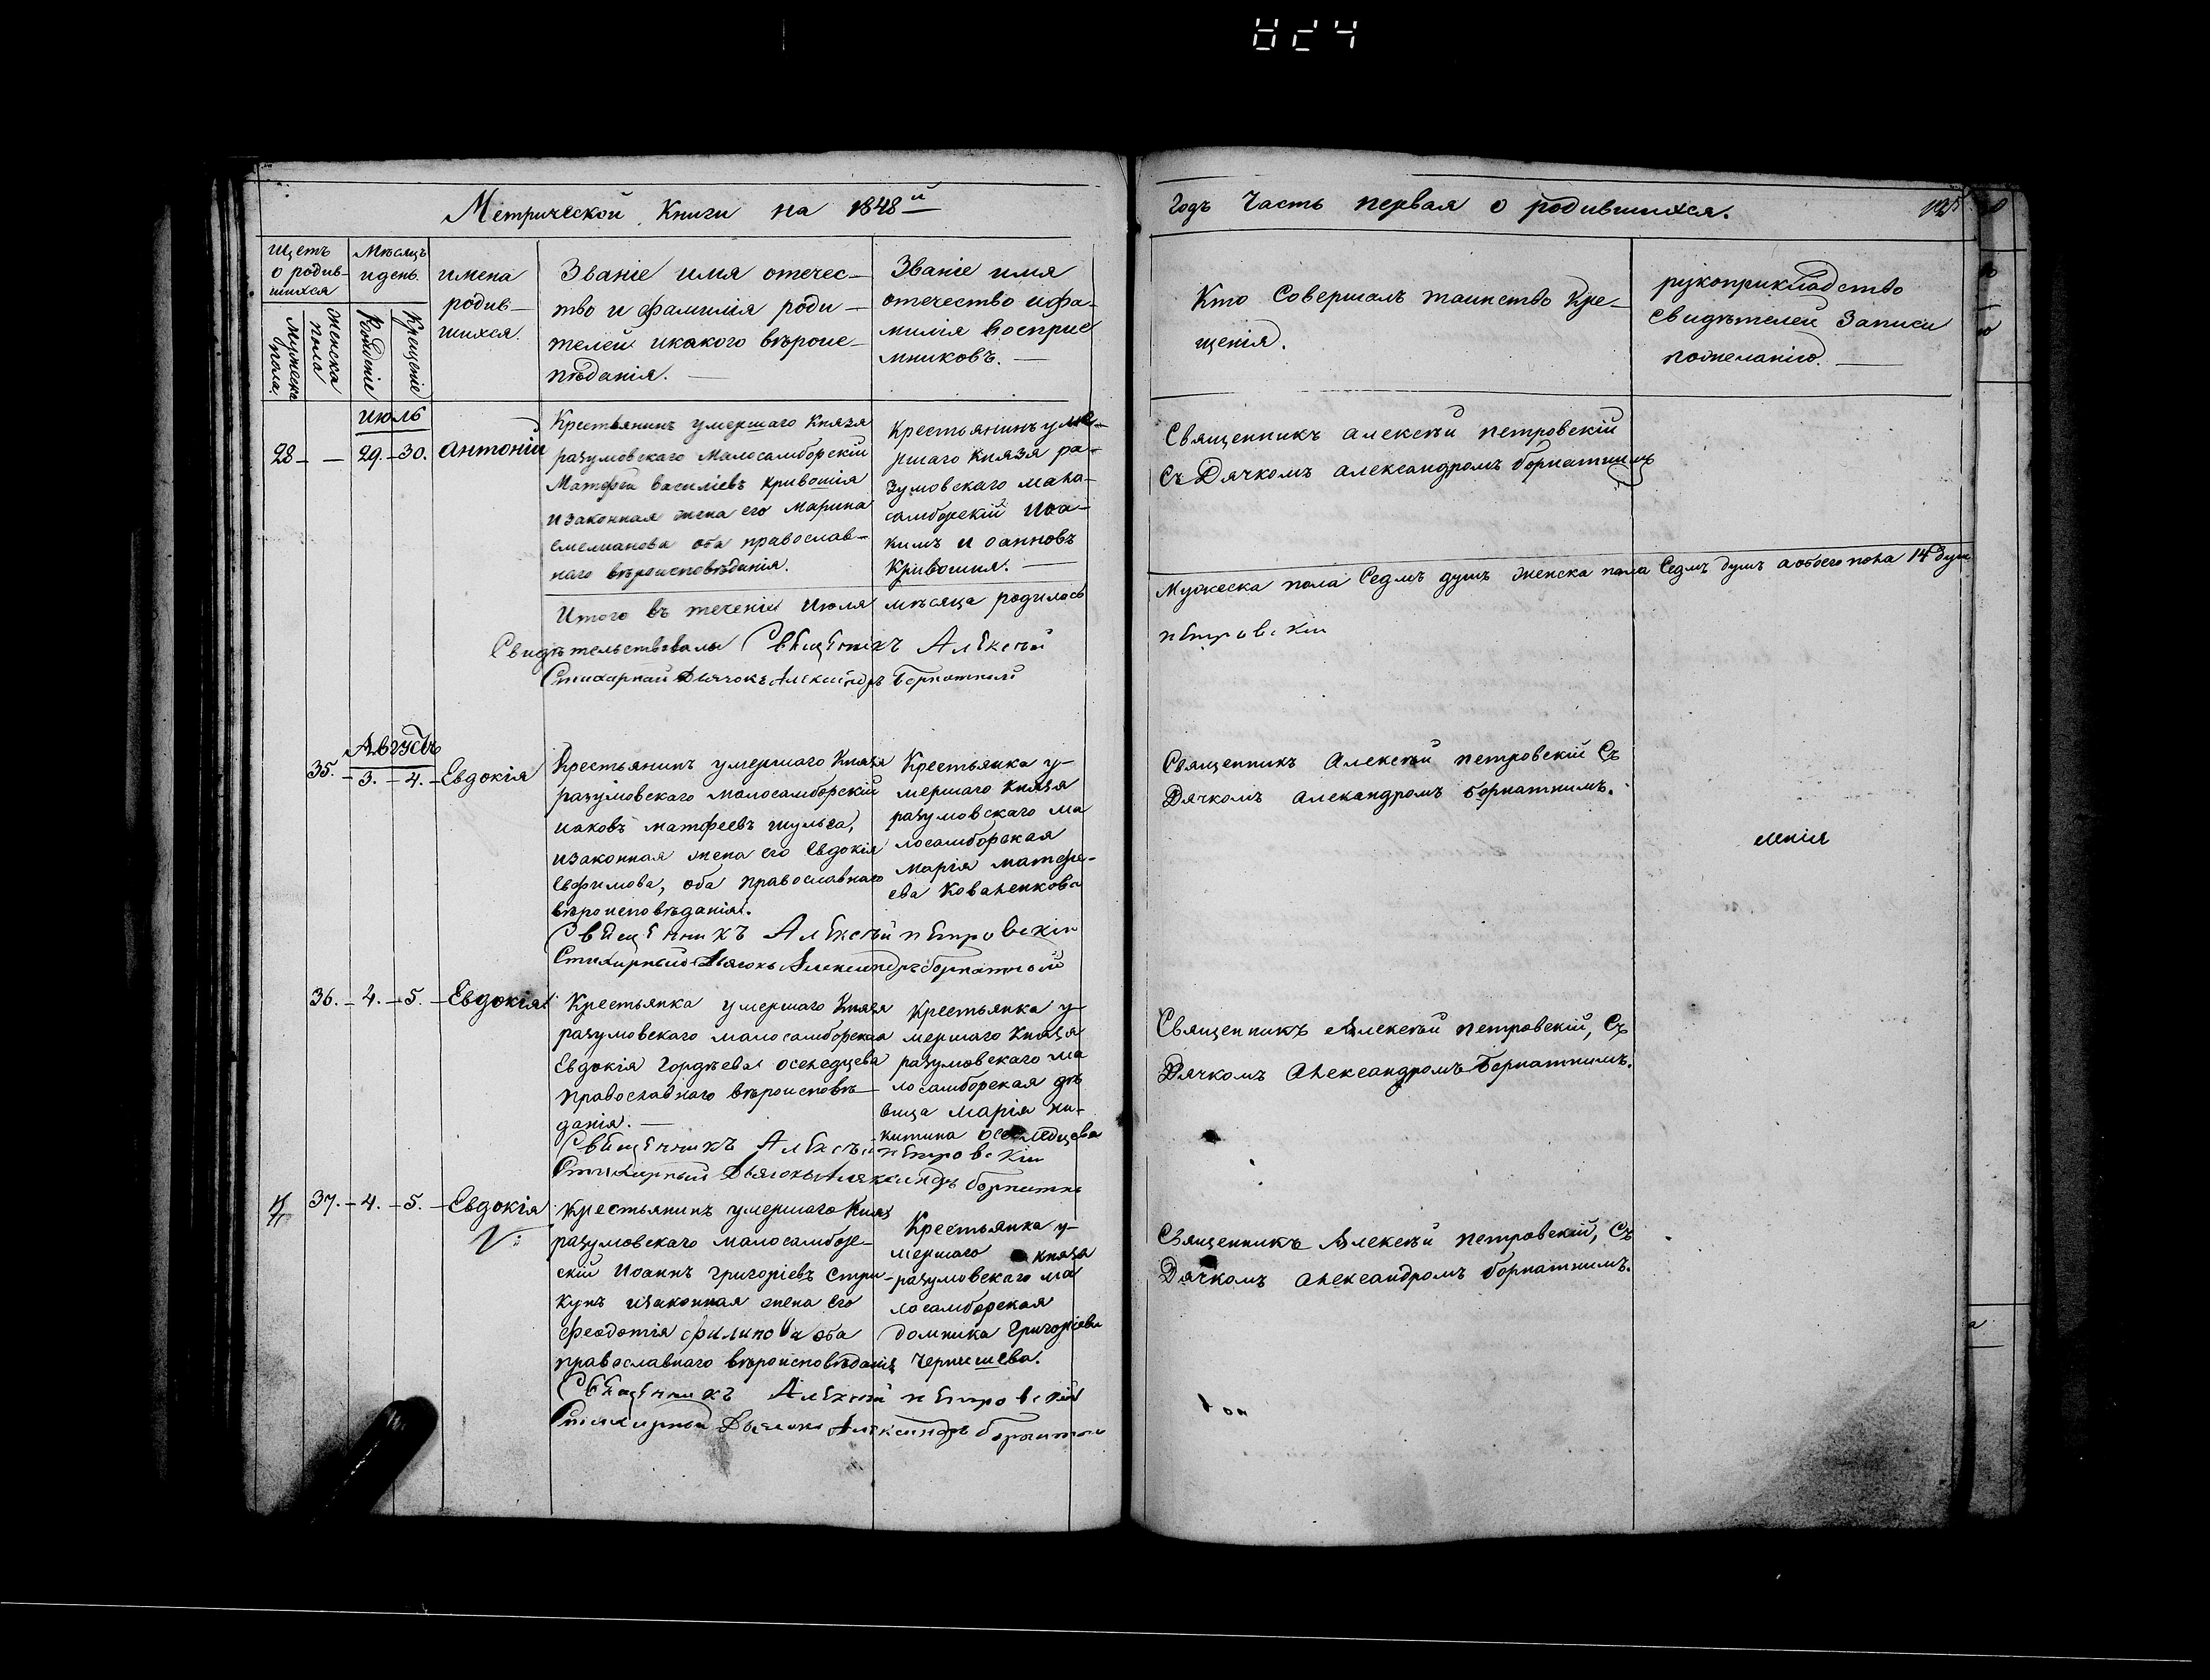 824
Метрической Книги на 1848й
Годъ Часть первая о родившихся.
Щетъ
о родив-
шихся
Мѣсяцъ
и день.
имена
родив-
шихся.
Званіе имя отечес-
тво и фамилія роди-
телей и какого вѣроис-
пѣданія.
Званіе имя
отечество и фа-
милія восприе
мниковъ.
Мужеска
пола.
Женска
пола
Рожденіе
Крещеніе
Кто Совершалъ таинство Кре-
щенія.
рукоприкладство
Свидѣтелей Записи
пожеланію.
июль
28 - - 29. - 30. Антоній
Крестьянинъ умершаго Князя
разумовскаго Малосамборскій
Матфей Василіевъ Кривошія
и законная жена его Марина
емелианова оба православ-
наго вѣроисповѣданія.
Крестьянинъ уме-
ршаго Князя ра-
зумовскаго мало-
самборскій Иоа-
кимъ Иоанновъ
Кривошия.
Священникъ Алексѣй петровскій
Съ Дячкомъ Александромъ борпатнимъ
Итого въ теченіи Июля мѣсяца родилось
Мужеска пола Седмъ душъ женска пола Седмъ душъ а обоего пола 14 душ
Свидѣтельствовалы Священникъ Алексѣй
петровскій
Стихарный Дьячокъ Александръ Борпатный
Августъ
35. - 3. - 4. - Евдокія
Крестьянинъ умершаго Князя
разумовскаго малосамборскій
иаковъ матфеевъ шульга,
и законная жена его Евдокія
Евфимова, оба православнаго
вѣроисповѣданія.
Крестьянка у-
мершаго Князя
разумовскаго ма
лосамборская
Марія матфе-
ева Коваленкова
Священникъ Алексѣй петровскій Съ
Дячкомъ Александромъ борпатнимъ.
ленія
Священникъ Алексѣй петровскій
Стихарный Дьячокъ Александръ борпатной
36. - 4. - 5. - Евдокія
Крестьянка умершаго Князя
разумовскаго малосамборская
Евдокія Гордѣева оселедцева
православнаго вѣроисповѣ-
данія.
Крестьянка у-
мершаго Князя
разумовскаго ма
лосамборская дѣ
вица Марія ни-
китина оселедцева
Священникъ Алексѣй петровскій, Съ
Дячкомъ Александромъ Борпатнимъ.
Священникъ Алексѣй петровскій
Стихарный Дьячокъ Александръ борпатны
37. - 4. - 5. - Евдокія
Крестьянинъ умершаго Князя
разумовскаго малосамбор-
скій Иоаннъ Григоріевъ Стри-
кунъ и законная жена его
феодотія филипова оба
православнаго вѣроисповѣданія
Крестьянка у-
мершаго князя
разумовскаго ма
лосамборская
домника Григоріева
Чернишева.
Священникъ Алексѣй петровскій, Съ
Дячкомъ Александромъ борпатнимъ.
Священникъ Алексѣй петровскій
Стихарной Дьячокъ Александръ борпатный